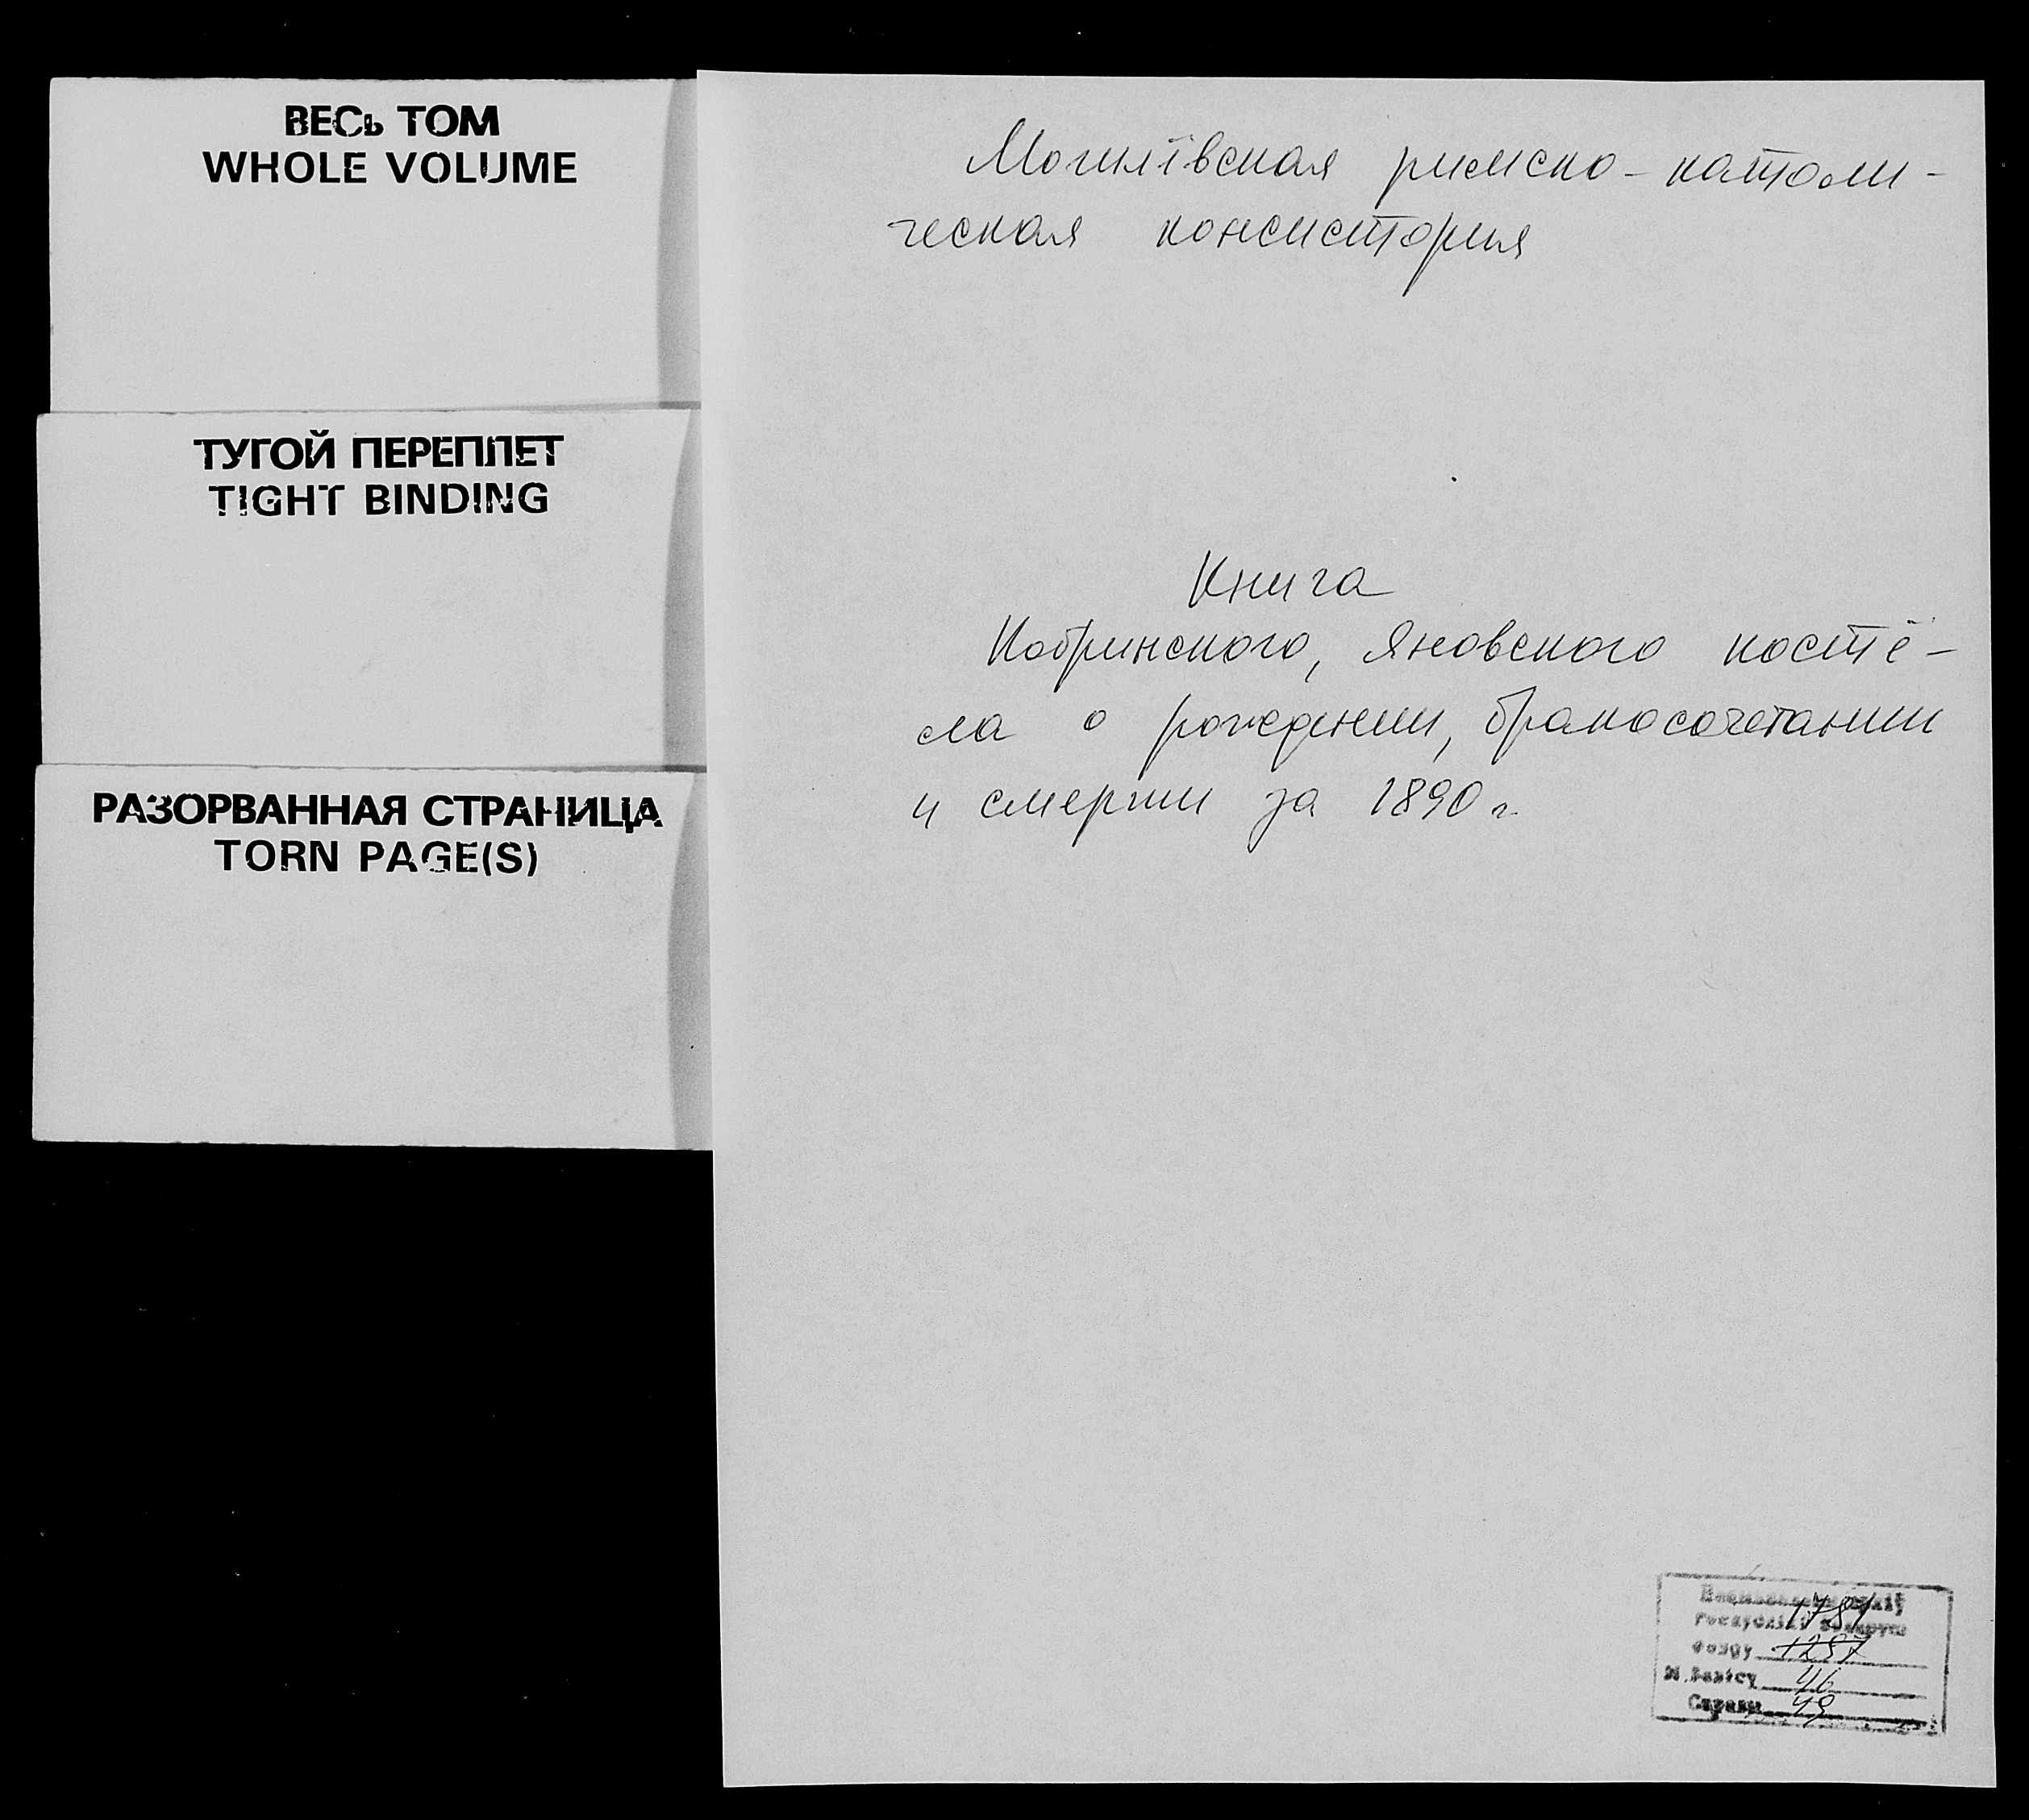 ВЕСЬ ТОМ
WHOLE VOLUME
ТУГОЙ ПЕРЕПЛЕТ
TIGHT BINDING
РАЗОРВАННАЯ СТРАНИЦА
TORN PAGE(S)
Могилёвская римско-католи-
ческая консистория
Книга
Кобринского, Яновского костё-
ла о рождении, бракосочетании
и смерти за 1890 г.
1781
Фонду 1297
№ Вопісу 46
Справы 49